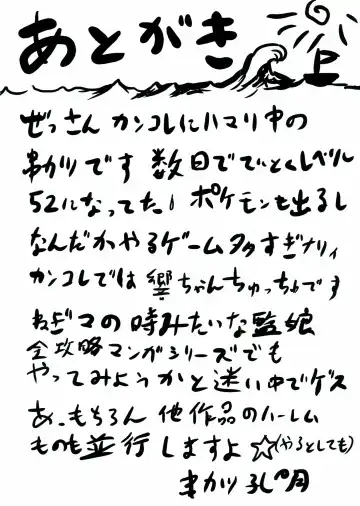 あとがき
上
ぜっさん カンコレにハマリ中の
串カツです 数日でていとくレベル
52になってた! ポケモンも出るし
なんだかやるゲーム多すぎナリィ
カンコレでは響ちゃんちゅっちゅです
ねぎマの時みたいな監娘
全攻略マンガシリーズでも
やってみようかと迷い中でゲス
あ、もちろん 他作品のハーレム
ものも並行しますよ☆(やるとしても)
串カツ